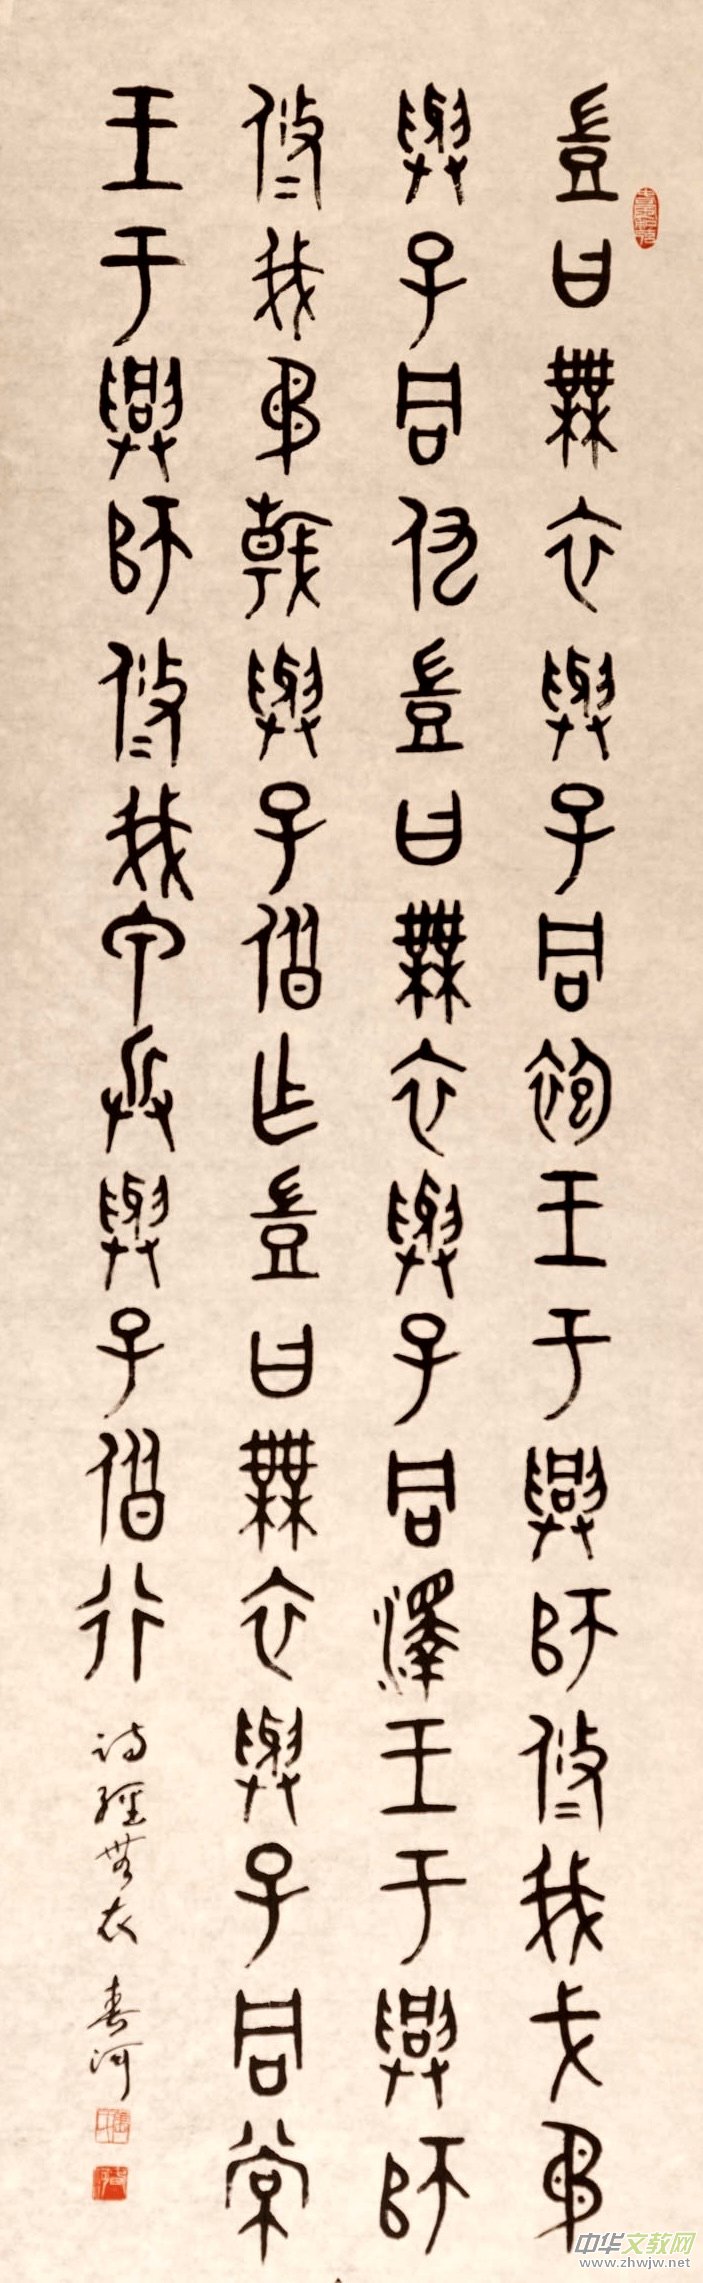 豈曰無衣與子同袍王于興師修我戈矛
與子同仇豈曰無衣與子同澤王于興師
修我矛戟與子偕作豈曰無衣與子同裳
王于興師修我甲兵與子偕行
詩經無衣 春河
中华文教网
www.zhwjw.net